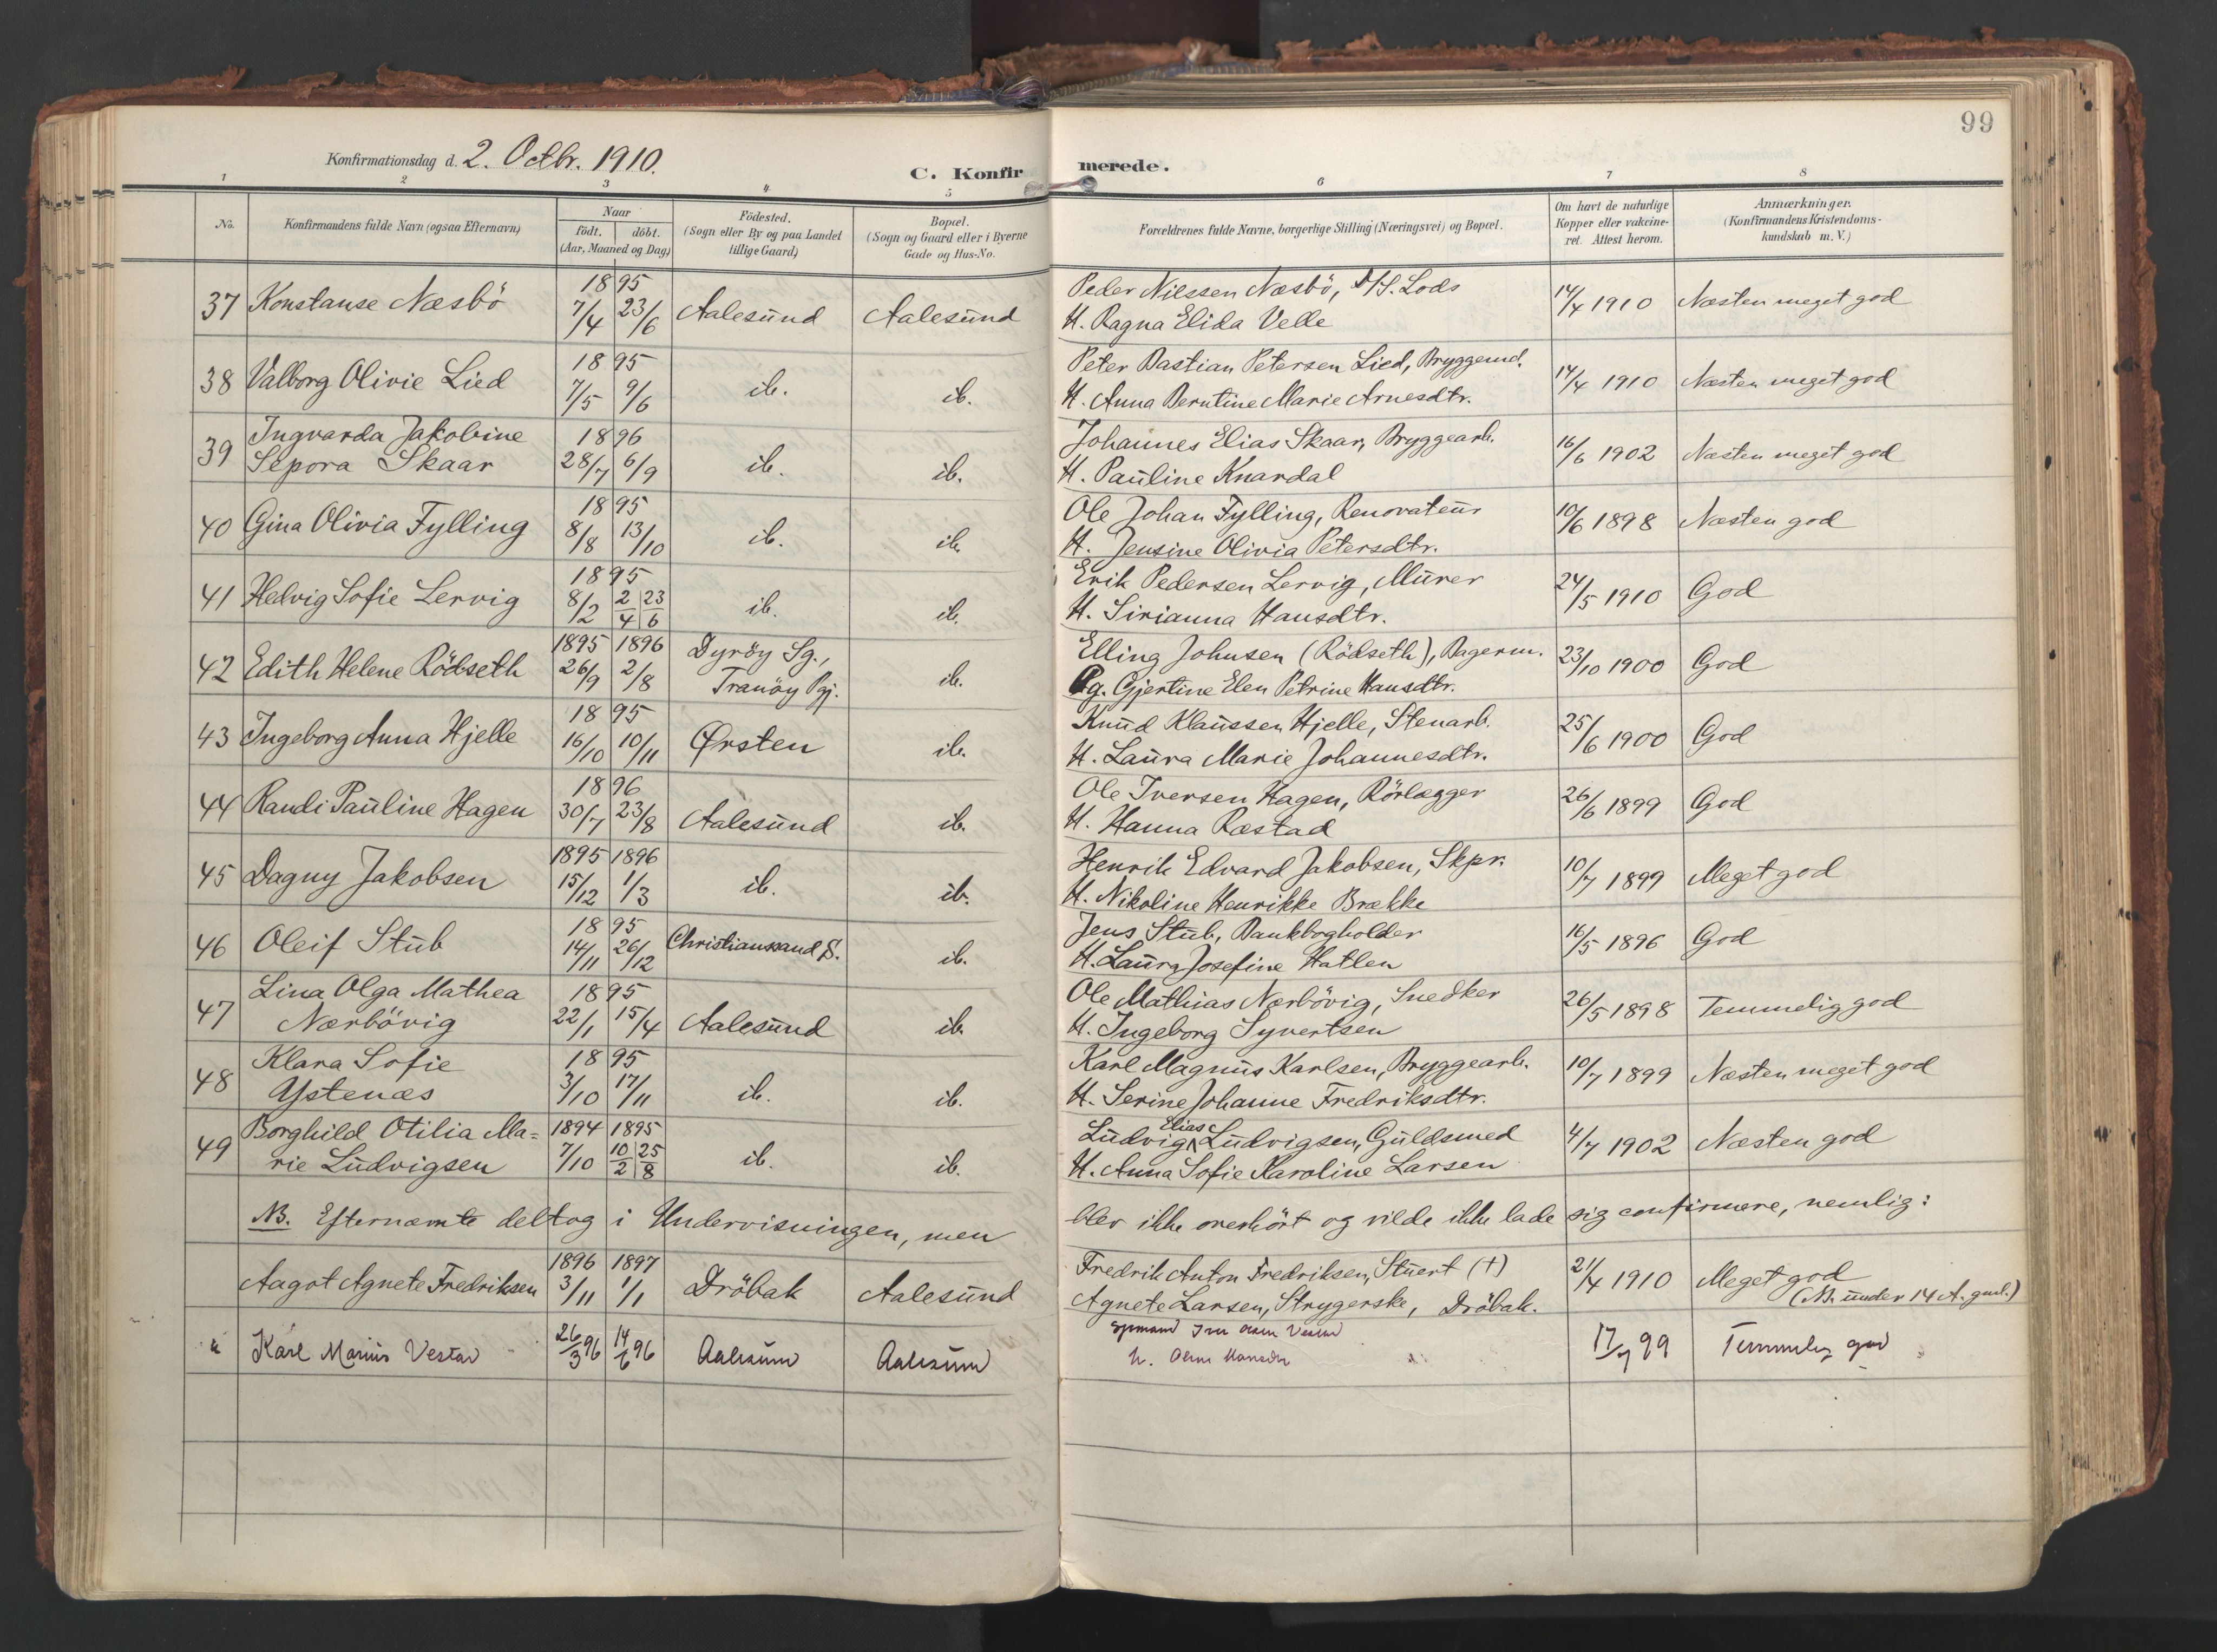 99
Konfirmationsdag d. 2. Octbr. 1910.
C. Konfirmerede.
1 2 3 4 5 6 7 8
No.
Konfirmandens fulde Navn (ogsaa Efternavn)
Naar
födt. döbt.
(Aar, Maaned og Dag)
Födested.
(Sogn eller By og paa Landet
tillige Gaard)
Bopæl.
(Sogn og Gaard eller i Byerne
Gade og Hus-No.
Forældrenes fulde Navne, borgerlige Stilling (Næringsvei) og Bopæl.
Om havt de naturlige
Kopper eller vakcine-
ret. Attest herom.
Anmærkninger.
(Konfirmandens Kristendoms-
kundskab m. V.)
37 Konstanse Næsbö 1895 7/4 23/6 Aalesund Aalesund
Peder Nilssen Næsbö, D/S. Lods
H. Ragna Elida Velle
14/4 1910 Næsten meget god
38 Valborg Olivie Lied 1895 7/5 9/6 ib. ib.
Peter Bastian Petersen Lied, Bryggemd.
H. Anna Berntine Marie Arnesdtr.
14/4 1910 Næsten meget god
39 Ingvarda Jakobine
Sepora Skaar 1896 28/7 6/9 ib. ib.
Johannes Elias Skaar, Bryggearb.
H. Pauline Knardal
16/6 1902 Næsten meget god
40 Gina Olivia Fylling 1895 8/8 13/10 ib. ib.
Ole Johan Fylling, Renovateur
H. Jensine Olivia Petersdtr.
10/6 1898 Næsten god
41 Hedvig Sofie Lervig 1895 8/2 2/4 23/6 ib. ib.
Erik Pedersen Lervig, Murer
H. Sirianna Hansdtr.
24/5 1910 God
42 Edith Helene Rödseth 1895 1896 26/9 2/8 Dyröy Sg.,
Tranöy Pgj. ib.
Elling Johnsen (Rödseth), Bagerm.
Pg. Gjertine Elen Petrine Hansdtr.
23/10 1900 God
43 Ingeborg Anna Hjelle 1895 16/10 10/11 Ørsten ib.
Knud Klaussen Hjelle, Stenarb.
H. Laura Marie Johannesdtr.
25/6 1900 God
44 Randi Pauline Hagen 1896 30/7 23/8 Aalesund ib.
Ole Iversen Hagen, Rörlægger
H. Hanna Ræstad
26/6 1899 God
45 Dagny Jakobsen 1895 1896 15/12 1/3 ib. ib.
Henrik Edvard Jakobsen, Skpr.
H. Nikoline Henrikke Brække
10/7 1899 Meget god
46 Oleif Stub 1895 14/11 26/12 Christianssand S. ib.
Jens Stub, Bankbogholder
H. Laura Josefine Hatlen
16/5 1896 God
47 Lina Olga Mathea
Nærbövig 1895 22/1 15/4 Aalesund ib.
Ole Mathias Nærbövig, Snedker
H. Ingeborg Syvertsen
26/5 1898 Temmelig god
48 Klara Sofie
Ystenæs 1895 3/10 17/11 ib. ib.
Karl Magnus Karlsen, Bryggearb.
H. Serine Johanne Fredriksdtr.
10/7 1899 Næsten meget god
49 Borghild Otilia Ma=
rie Ludvigsen 1894 1895 7/10 10/2 25/8 ib. ib.
Ludvig Elias Ludvigsen, Guldsmed
H. Anna Sofie Karoline Larsen
4/7 1902 Næsten god
NB. Efternævnte deltog i Undervisningen, men blev ikke overhört og vilde ikke lade sig confirmere, nemlig:
Aagot Agnete Fredriksen 1896 1897 3/11 1/1 Dröbak Aalesund
Fredrik Anton Fredriksen, Stuert (†)
Agnete Larsen, Strygerske, Dröbak.
21/4 1910 Meget god
(NB. under 14 A. gml.)
Karl Marius Vestad 26/3 96 14/6 96 Aalesund Aalesund
17/7 99 Temmelig god